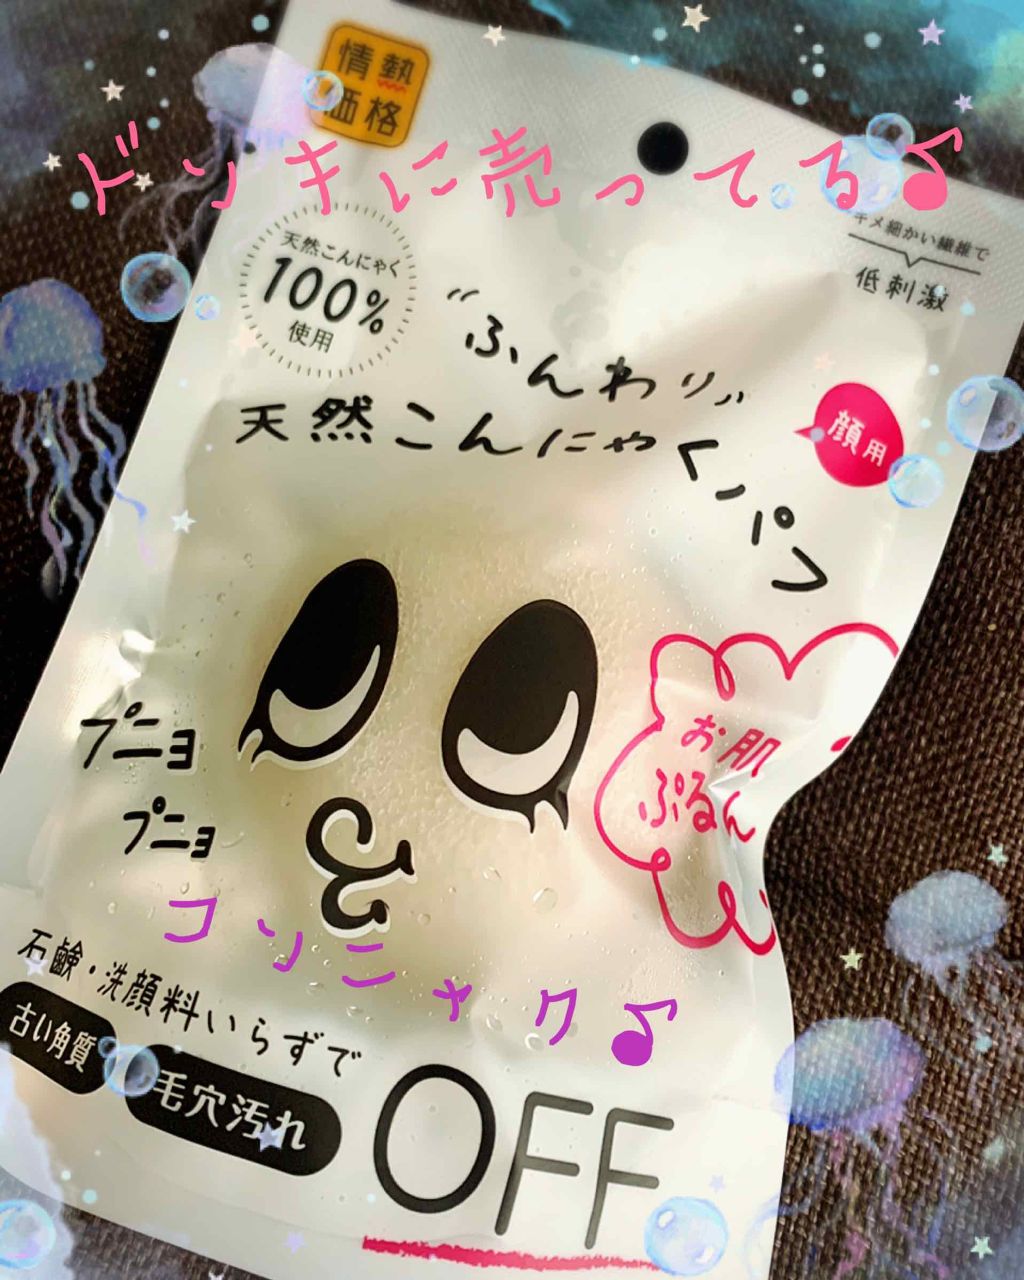 情熱
価格
ドンキに売ってる♪
キメ細かい繊維で
低刺激
天然こんにゃく
100%
使用
"ふんわり"
天然こんにゃくパフ
顔用
お肌
ぷるん
プニョ
プニョ
コンニャク♪
石鹸・洗顔料いらずで
古い角質
毛穴汚れ
OFF